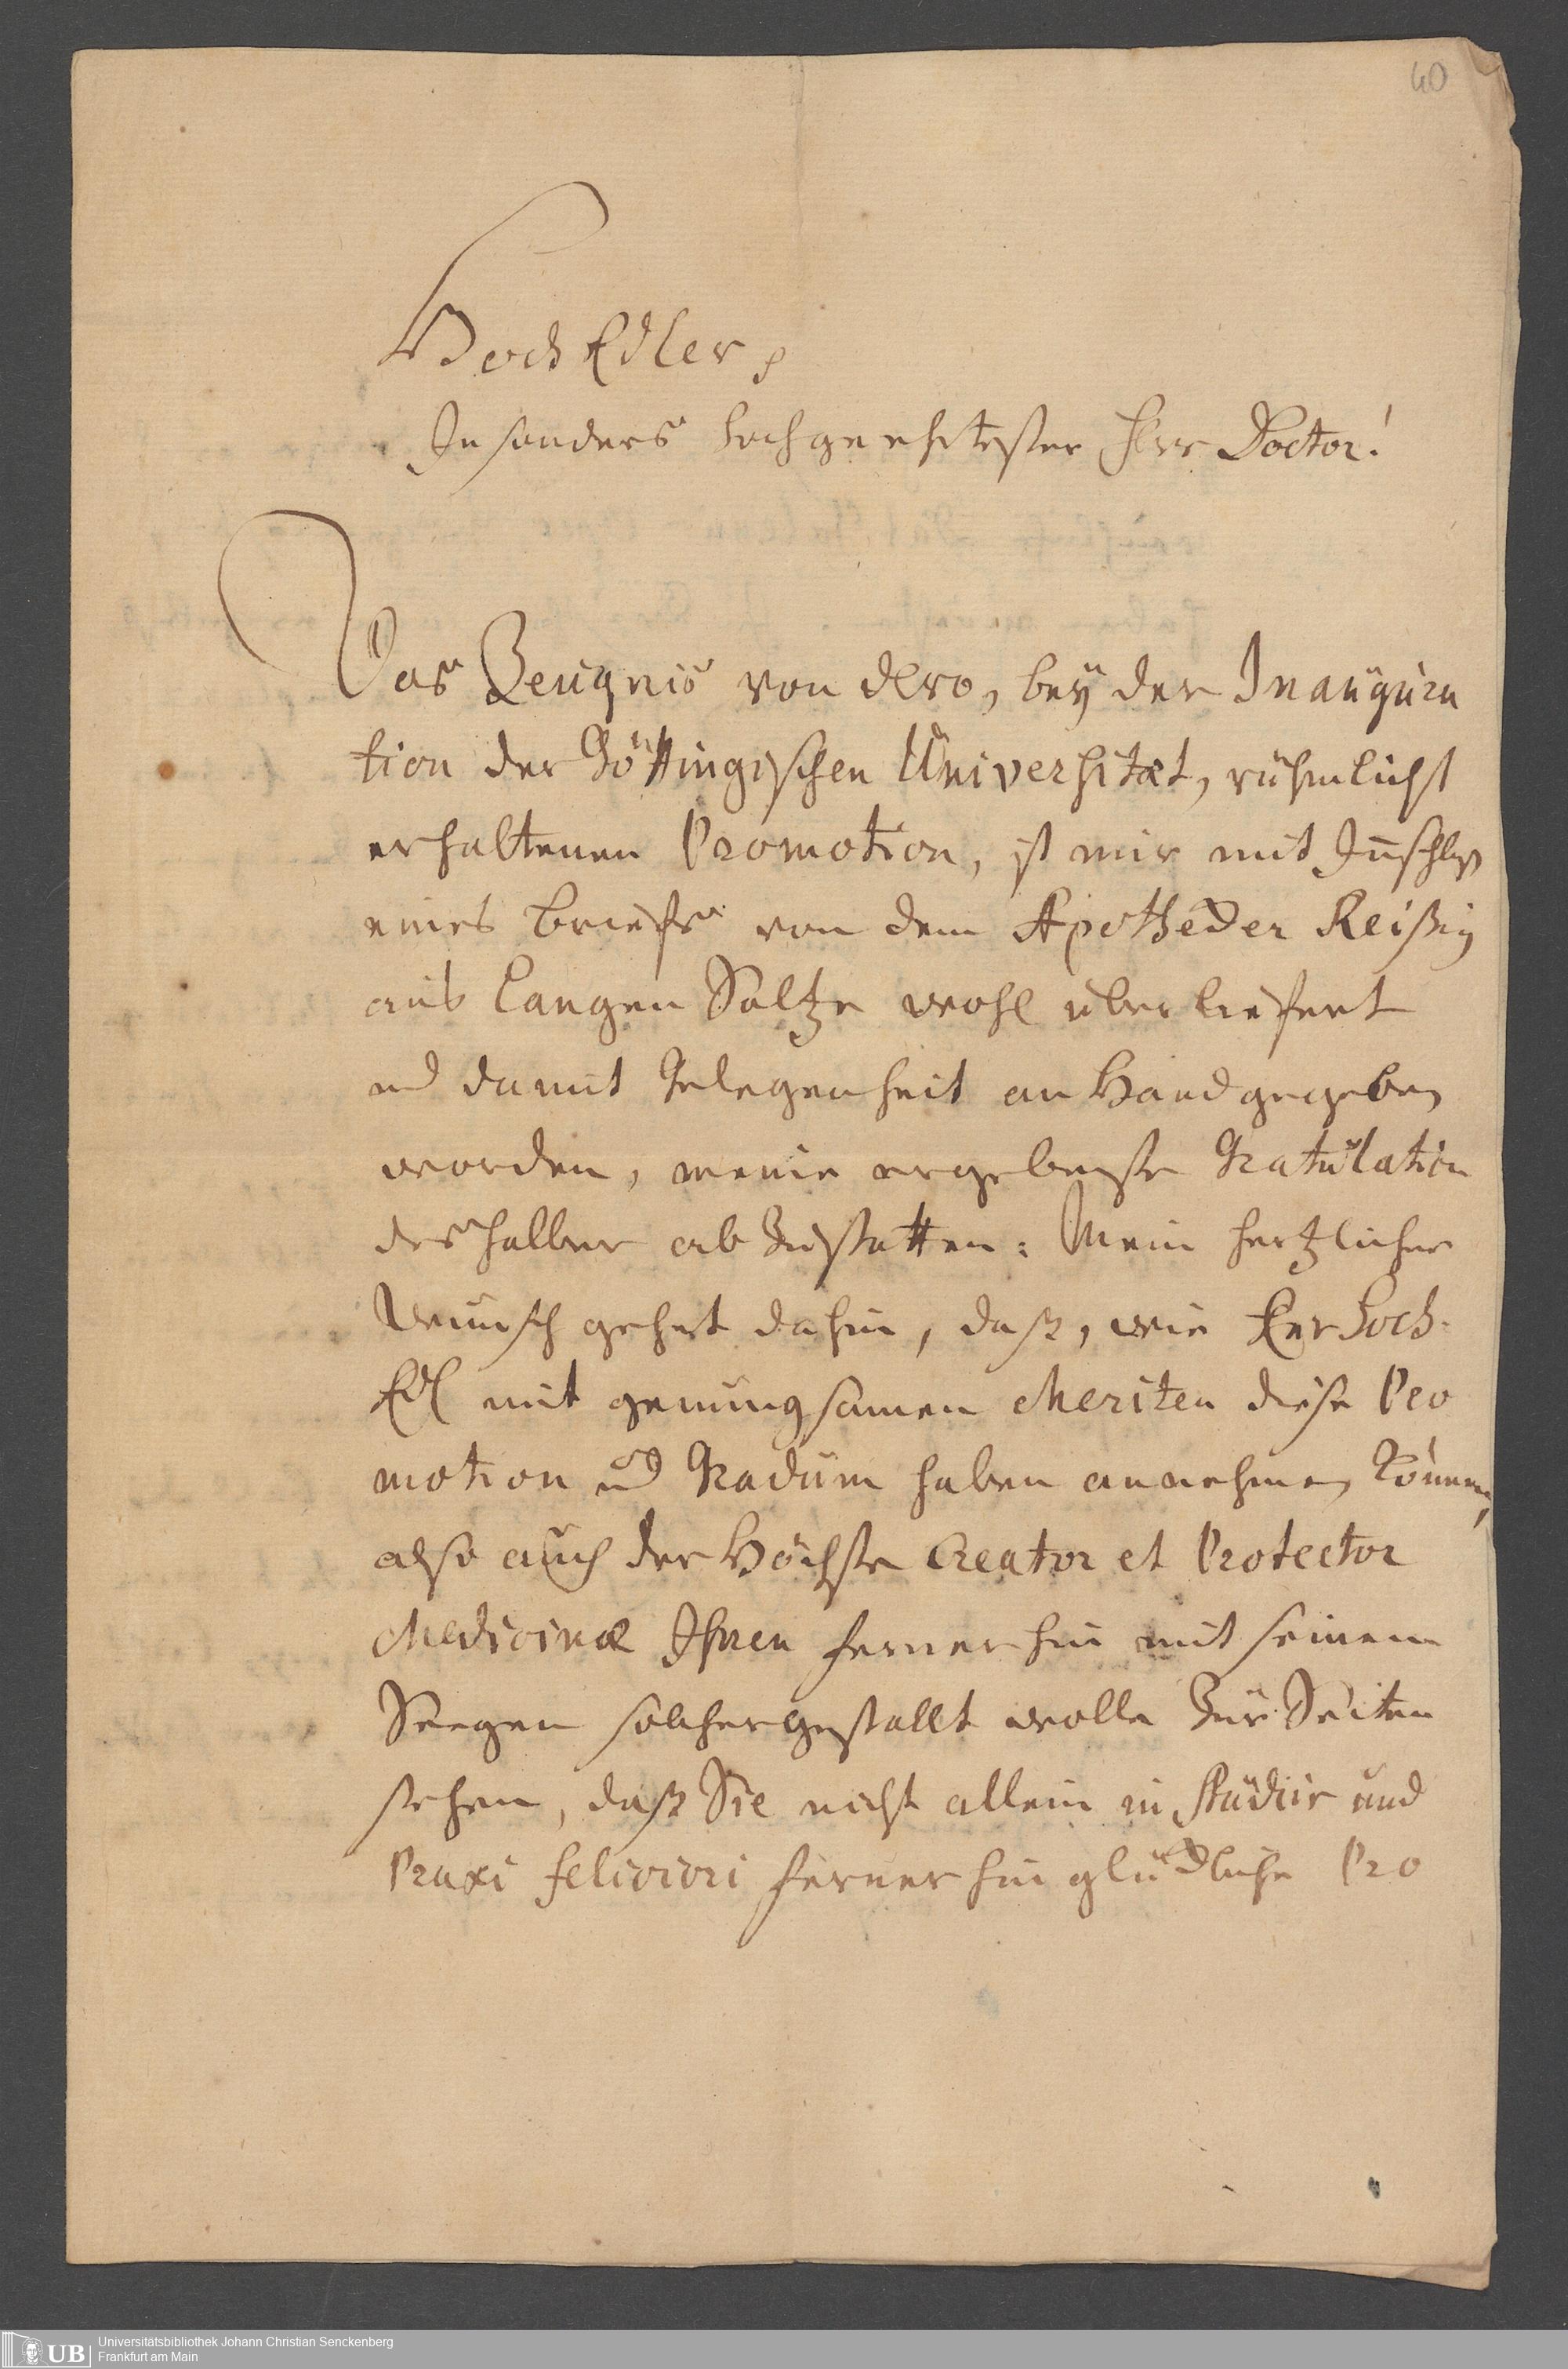 40
HochEdler,
Insonders hochgeehrtester Herr Doctor!
Das Zeugnis von dero, bey der Inaugura
tion der Göttingischen Universitæt, rühmlichst
erhaltenen Promotion, ist mir mit Inschluß
eines briefs von dem Apothecker Reißig
aus Langen Saltze wohl überliefert
und damit Gelegenheit an Hand gegeben
worden, meine ergebenste Gratulation
deshalber abzustatten: Mein hertzlicher
Wunsch gehet dahin, daß, wie Ewr Hoch-
Edl mit genungsamen Meriten diese Pro
motion und Gradum haben annehmen können,
also auch der Höchste Creator et Protector
Medicinæ Ihnen fernerhin mit seinem
Seegen solchergestallt wolle zur Seiten
stehen, daß Sie nicht allein in Studiis und
Praxi feliciori fernerhin glückliche Pro
UB
Universitätsbibliothek Johann Christian Senckenberg
Frankfurt am Main